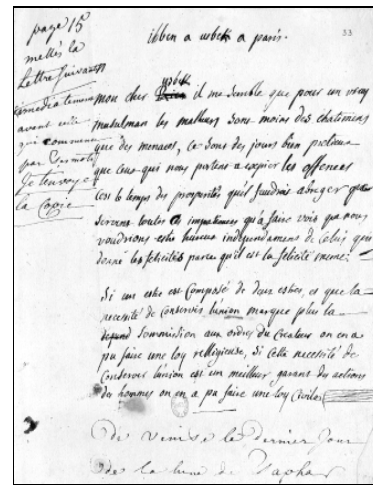 page 15
mettés la
Lettre suivante
immediatement
avant celle
qui commence
par
Je t'envoye
la Copie
33
ibben a usbek a paris.
usbek
mon cher il me semble que pour un vray
musulman les malheurs sont moins des chatimens
que des menaces, ce sont des jours bien pretieux
que ceux qui nous portent a expier les offences
c'est le temps des prosperités qu'il faudroit abreger que
servent toutes impatiences qu'a faire voir que nous
voudrions estre heureux independament de celuy qui
donne les felicités parce qu'il est la felicité meme.
Si un estre est composé de deux estres, et que la
necessité de conserver l'union marque plus la
soummission aux ordres du Createur on en a
pu faire une loy relligieuse, Si cette necessité de
conserver l'union est un meilleur garant des actions
des hommes on en a pu faire une loy Civile
De venise le dernier jour
de la lune de Saphar